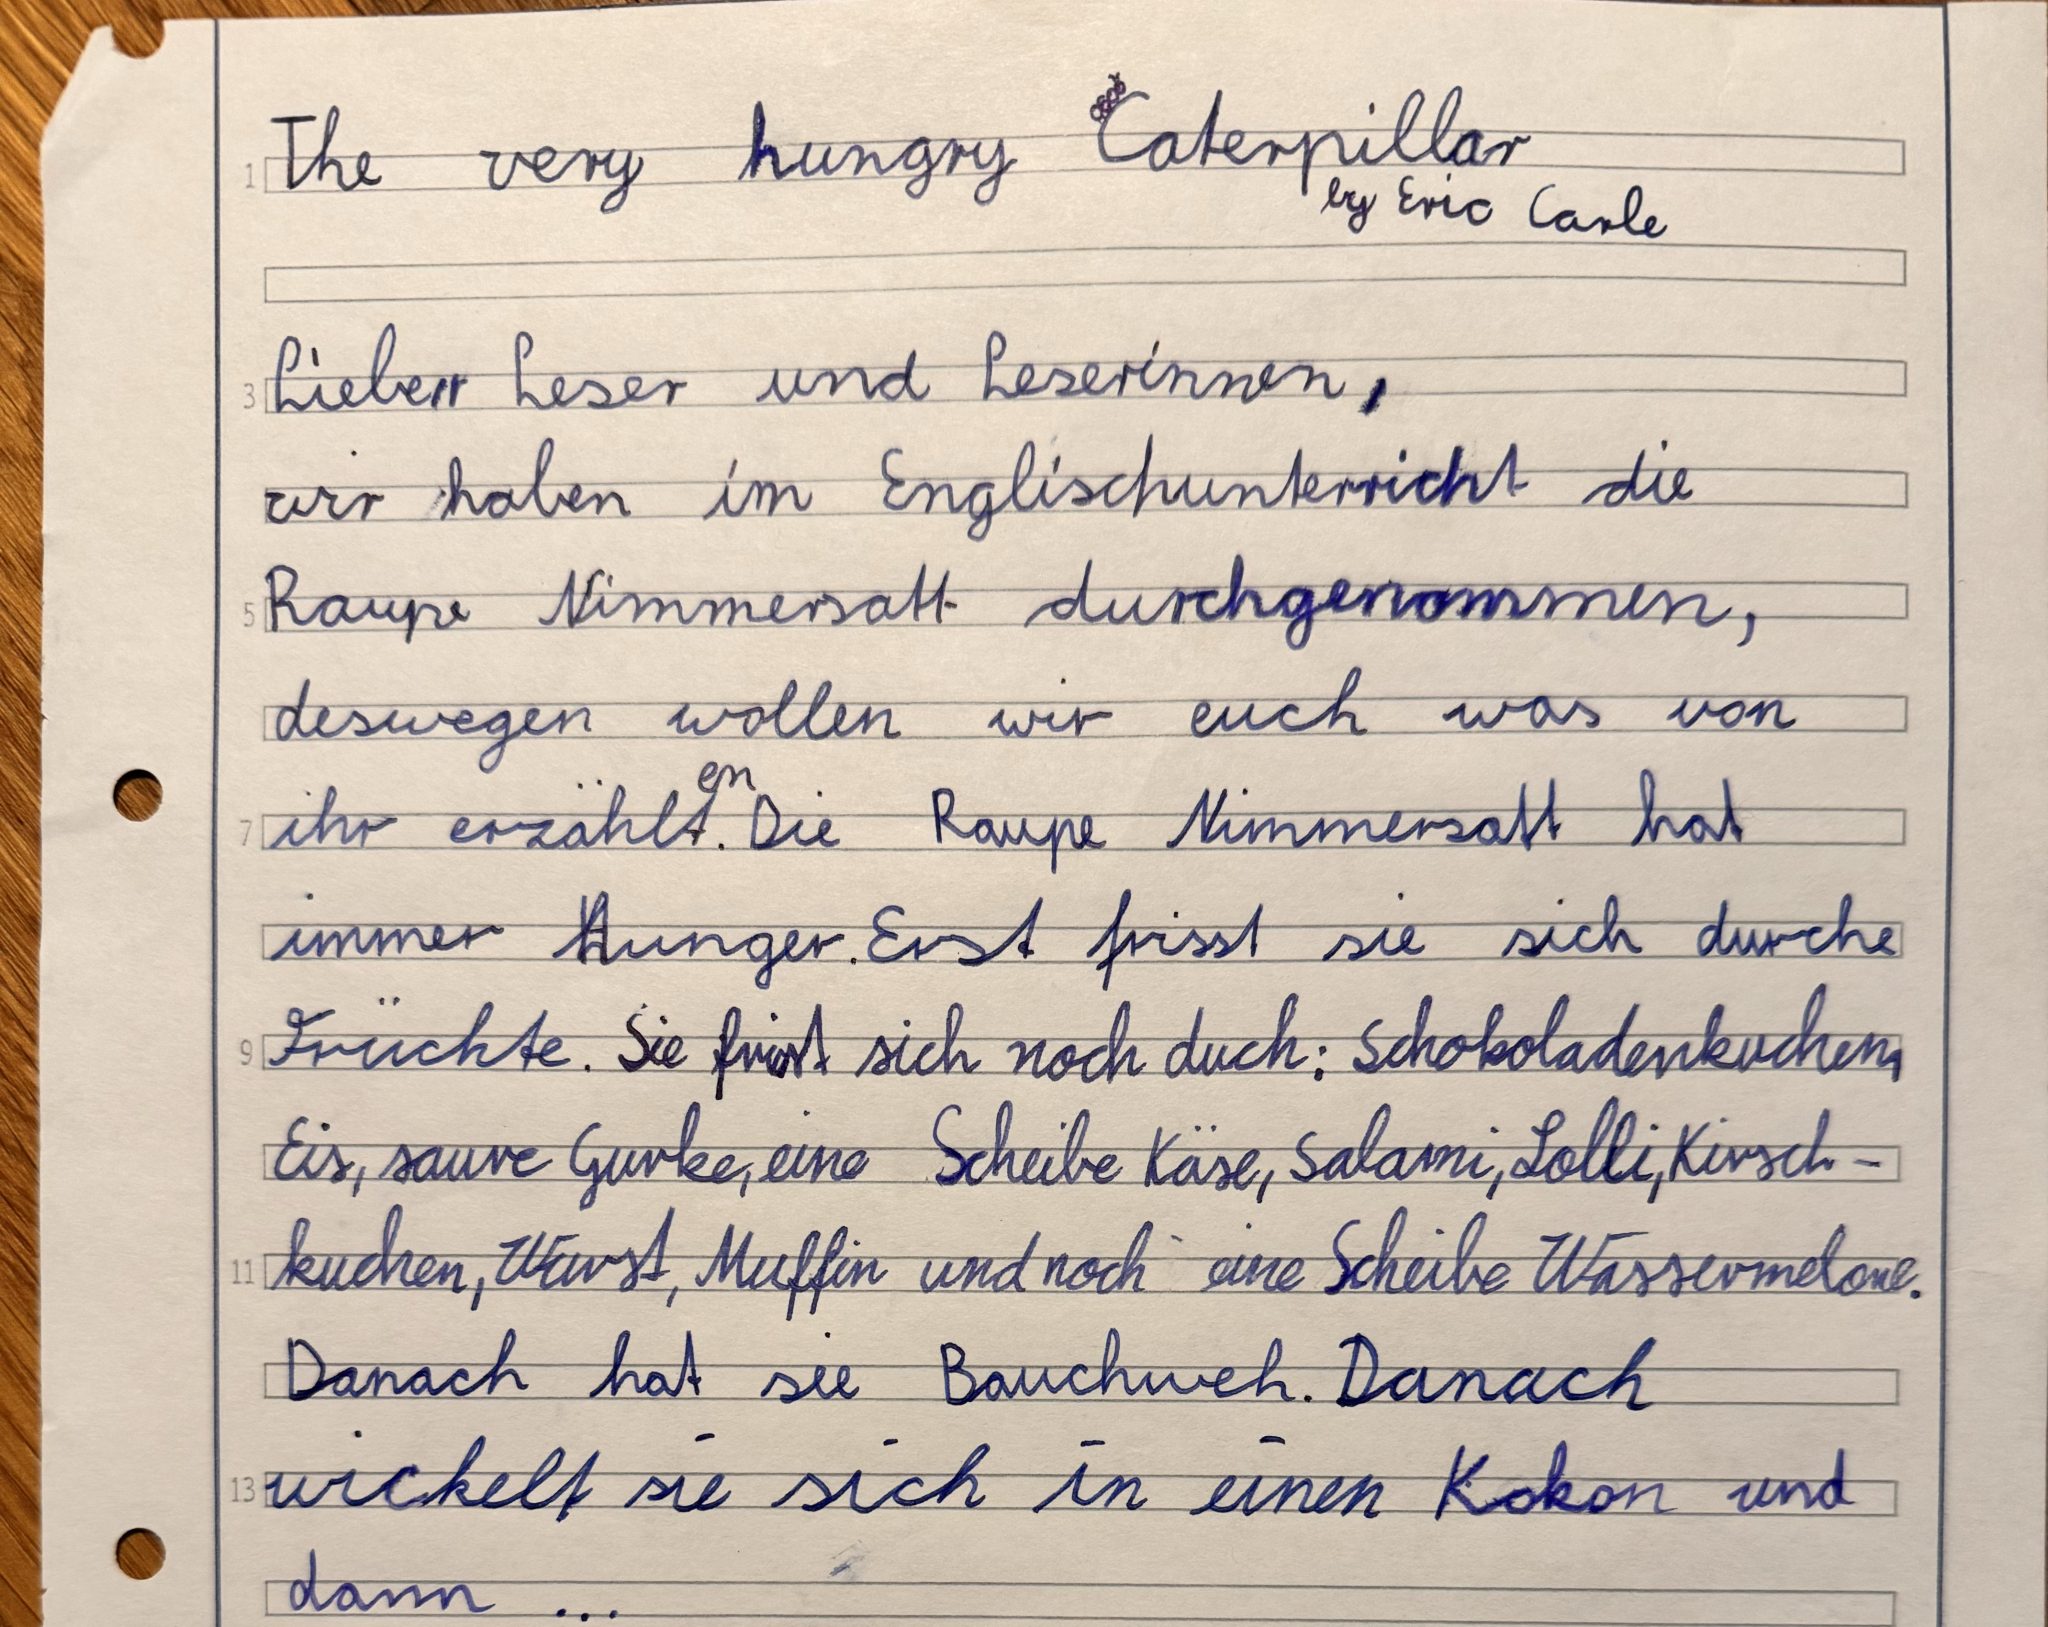 The very hungry Caterpillar
by Eric Carle
Lieber Leser und Leserinnen,
wir haben im Englischunterricht die
Raupe Nimmersatt durchgenommen,
deswegen wollen wir euch was von
ihr erzählen. Die Raupe Nimmersatt hat
immer Hunger. Erst frisst sie sich durche
Früchte. Sie frisst sich noch duch: Schokoladenkuchen,
Eis, saure Gurke, eine Scheibe Käse, Salami, Lolli, Kirsch-
kuchen, Wurst, Muffin und noch eine Scheibe Wassermelone.
Danach hat sie Bauchweh. Danach
wickelt sie sich in einen Kokon und
dann ...
1
3
5
7
9
11
13